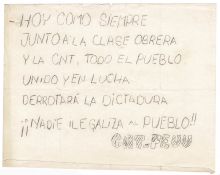 HOY COMO SIEMPRE
JUNTO A LA CLASE OBRERA
Y LA CNT, TODO EL PUEBLO
UNIDO Y EN LUCHA
DERROTARÁ LA DICTADURA
¡¡NADIE ILEGALIZA AL PUEBLO!!